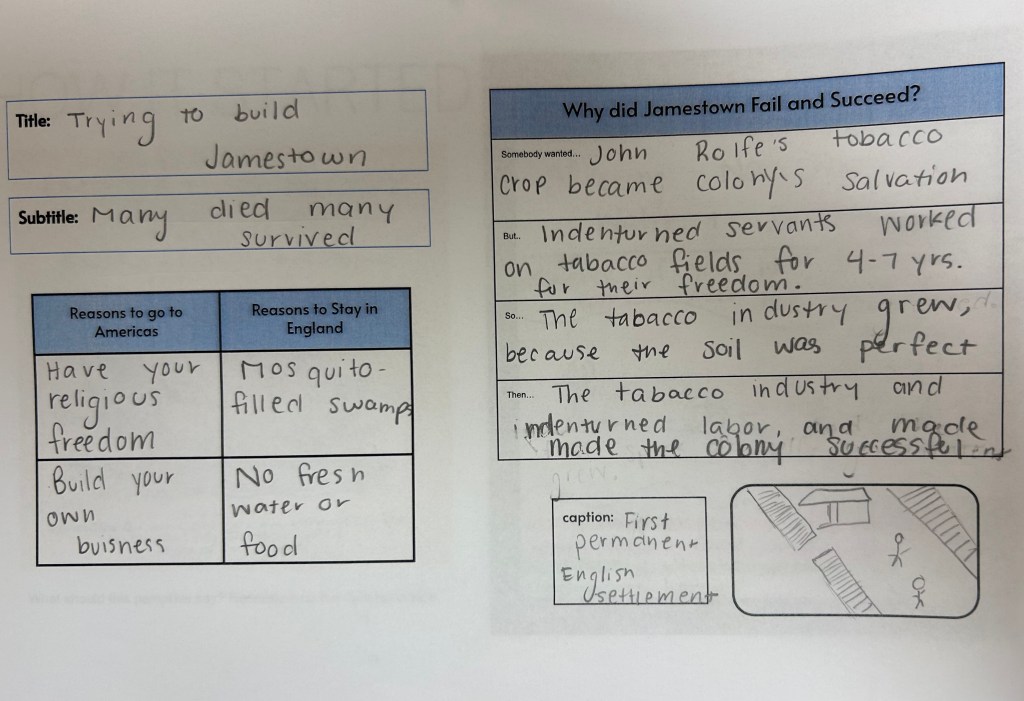 Title: Trying to build
Jamestown
Subtitle: Many died many
survived
Reasons to go to
Americas
Reasons to Stay in
England
Have your
religious
freedom
Mosquito-
filled swamps
Build your
own
buisness
No fresh
water or
food
Why did Jamestown Fail and Succeed?
Somebody wanted... John Rolfe's tobacco
crop became colony's salvation
But.. Indenturned servants worked
on tabacco fields for 4-7 yrs.
for their freedom.
So... The tabacco industry grew,
because the soil was perfect
Then... The tabacco industry and
indenturned labor, and made
made the colony successful
caption: First
permanent
English
settlement